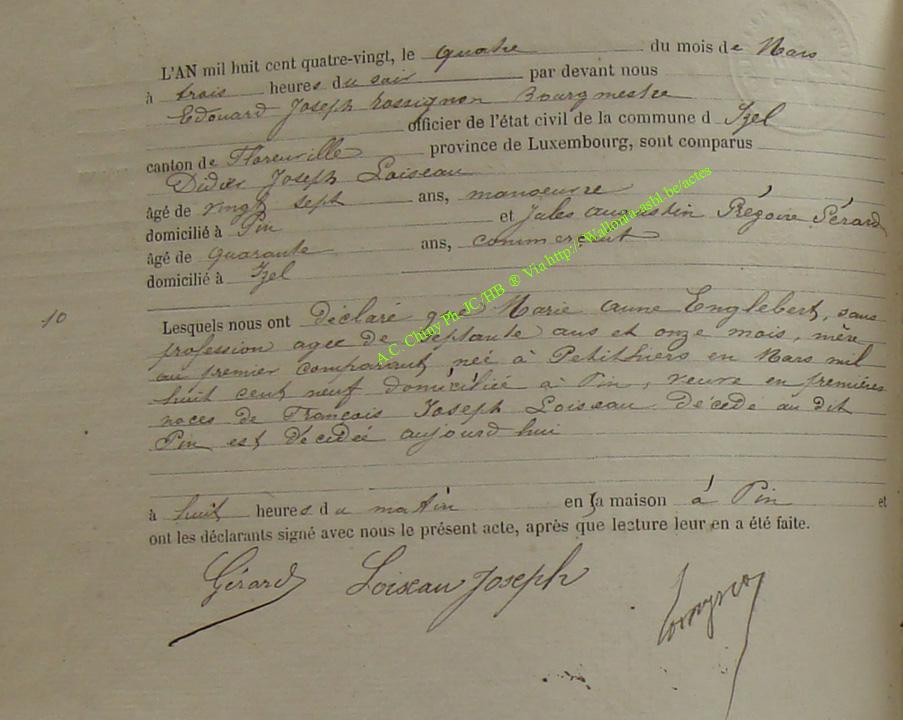 L'AN mil huit cent quatre-vingt, le quatre du mois de Mars
à trois heures du soir par devant nous
Edouard Joseph Rossignon Bourgmestre
officier de l'état civil de la commune d Izel
canton de Florenville province de Luxembourg, sont comparus
Didier Joseph Loiseau
âgé de vingt sept ans, manoeuvre
domicilié à Pin et Jules Augustin Grégoire Gérard
âgé de quarante ans, commerçant
domicilié à Izel
10
Lesquels nous ont déclaré que Marie anne Englebert, sans
profession agée de septante ans et onze mois, mère
au premier comparant, née à Petithiers en Mars mil
huit cent neuf domiciliée à Pin, veuve en premières
noces de François Joseph Loiseau décédé au dit
Pin est décédée aujourd hui
à huit heures du matin en sa maison à Pin et
ont les déclarants signé avec nous le présent acte, après que lecture leur en a été faite.
Gérard Loiseau Joseph
A.C. Chiny Ph JC/HB ® Via http://Wallonia-asbl.be/actes